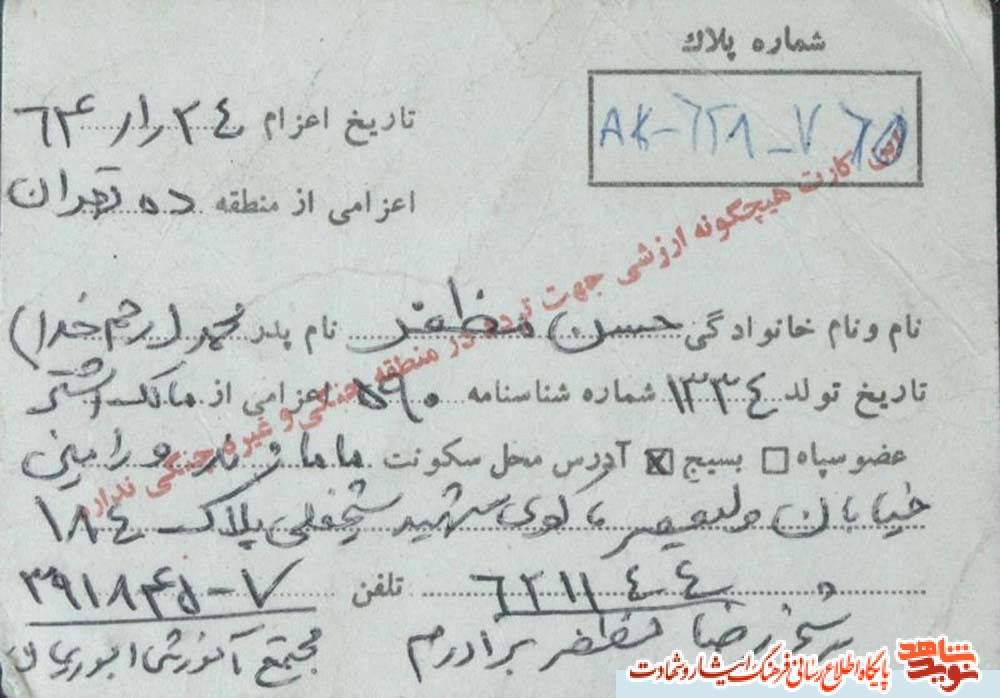 شماره پلاك
AK-628-7
تاریخ اعزام ۶۴٫۱٫۲۴
اعزامی از منطقه ده تهران
این کارت هیچگونه ارزشی جهت تردد در منطقه جنگی و غیره جنگی ندارد
نام و نام خانوادگی حسن مظفر نام پدر محمد (رحم خدا)
تاریخ تولد ۱۳۳۴ شماره شناسنامه ۵۹۰ اعزامی از مالک اشتر
عضو سپاه ☐ بسیج ☒ آدرس محل سکونت مامازند ورامین
خیابان ولیعصر کوی شهید پلاک ۱۸۴
۶۲۱۱۴۴ تلفن ۳۹۱۸۴۵-۷
شیخ رضا مظفر برادرم مجتمع آموزشی ابوریحان
نوید شاهد
پایگاه اطلاع رسانی فرهنگ ایثار و شهادت